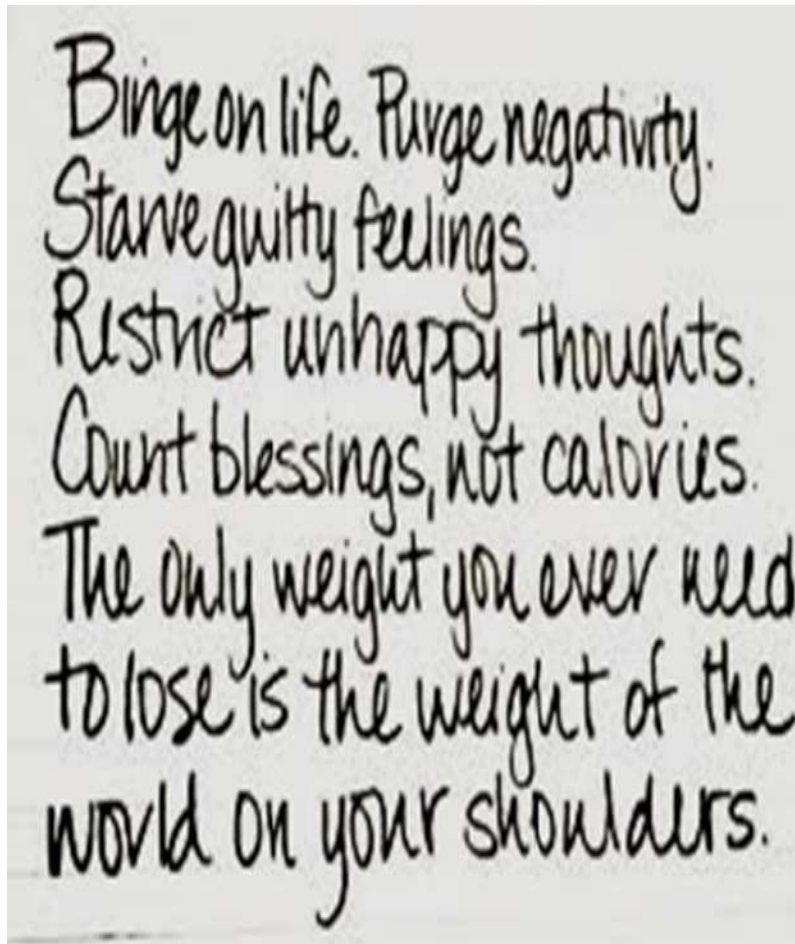 Binge on life. Purge negativity.
Starve guilty feelings.
Restrict unhappy thoughts.
Count blessings, not calories.
The only weight you ever need
to lose is the weight of the
world on your shoulders.